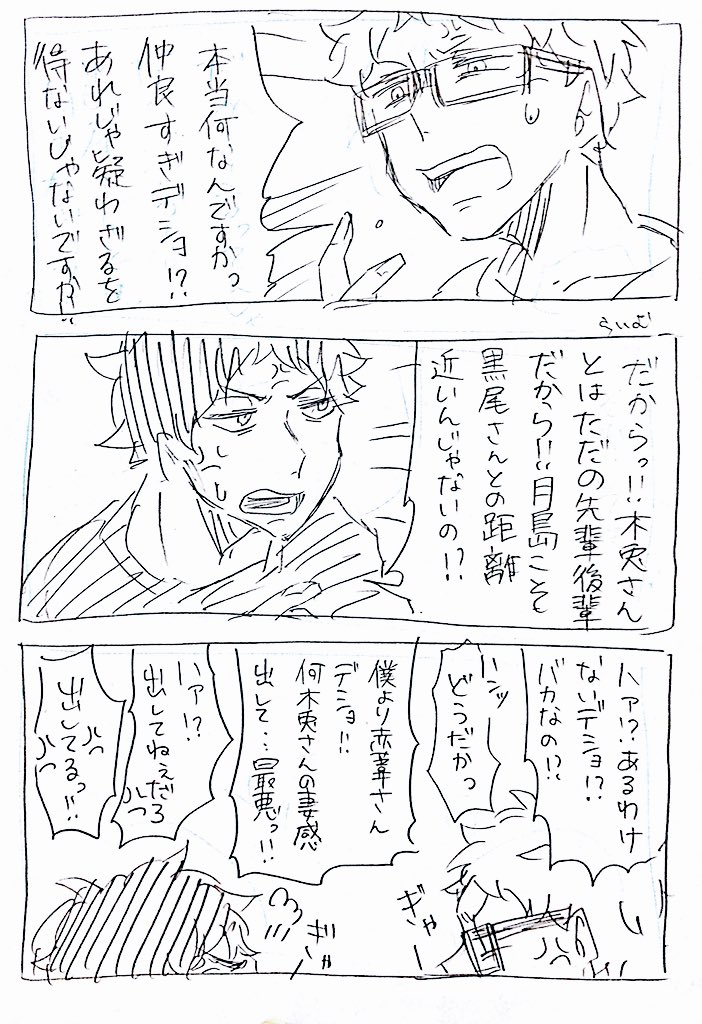 本当何なんですかっ
仲良すぎデショ!?
あれじゃ疑わざるを
得ないじゃないですか!!
らいむ
だからっ!!木兎さん
とはただの先輩後輩
だから!!月島こそ
黒尾さんとの距離
近いんじゃないの!?
ハァ!?あるわけ
ないデショ!?
バカなの!?
ハンッ
どうだかっ
僕より赤葦さん
デショ!!
何木兎さんの妻感
出して…最悪っ!!
ハァ!?
出してねぇだろ
出してるっ!!
ぎゃ
ぎゃ